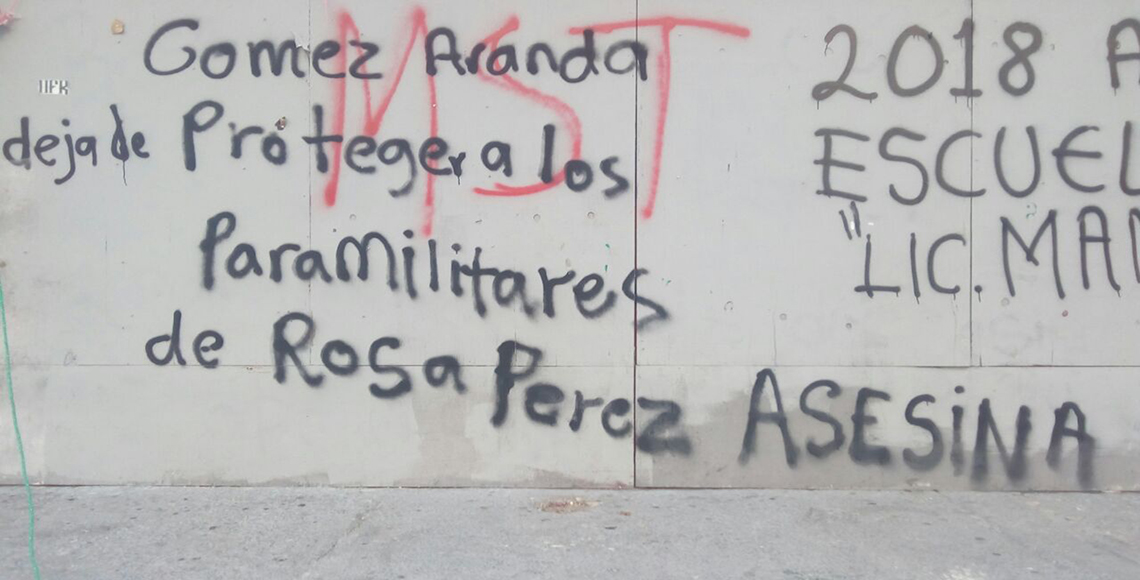 Gomez Aranda
deja de Proteger a los
Paramilitares
de Rosa Perez ASESiNA
MST
2018 A
ESCUEL
"LIC. MAN